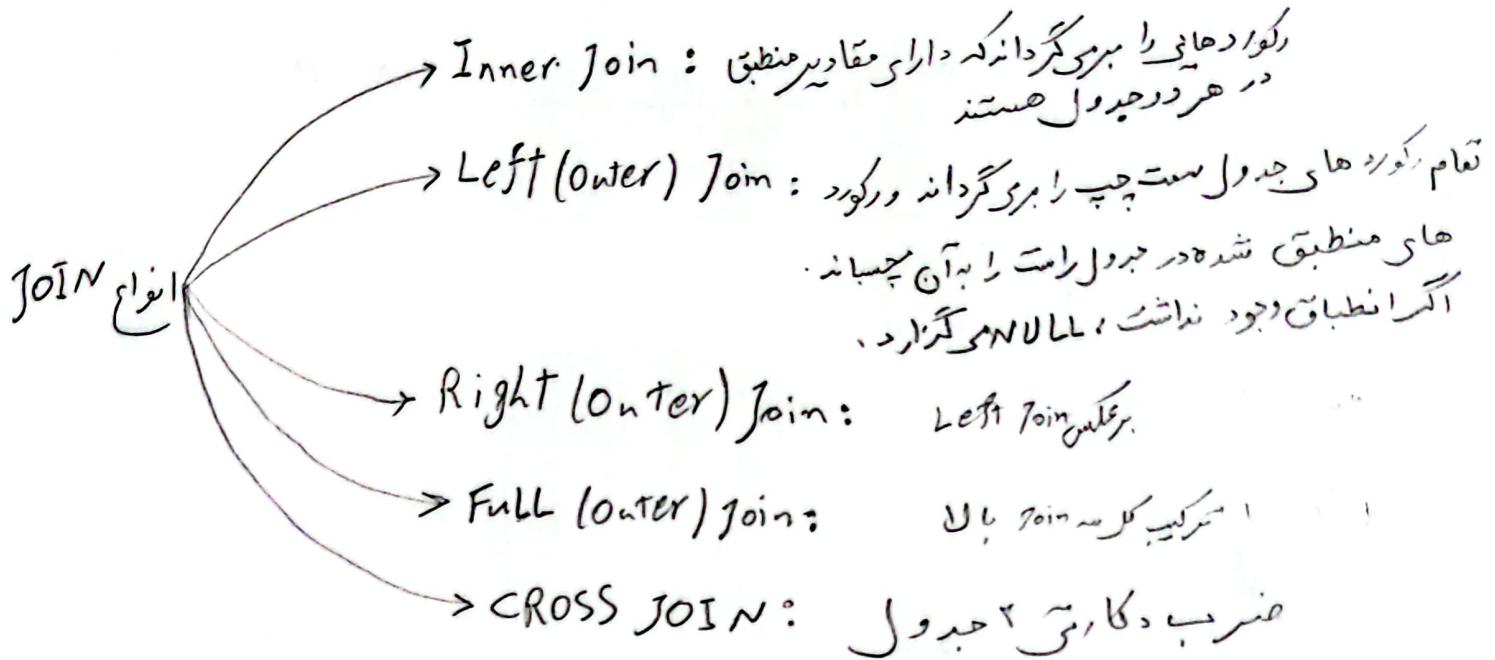 انواع JOIN
Inner Join : رکوردهایی را برمی‌گرداند که دارای مقادیر منطبق
در هر دو جدول هستند
Left (outer) Join : تمام رکورد های جدول سمت چپ را برمی گرداند و رکورد
های منطبق شده در جدول راست را به آن میچسباند.
اگر انطباق وجود نداشت، NULL می گزارد.
Right (Outer) Join : برعکس Left Join
FULL (outer) Join : ترکیب کل سه Join بالا
CROSS JOIN : ضرب دکارتی ۲ جدول